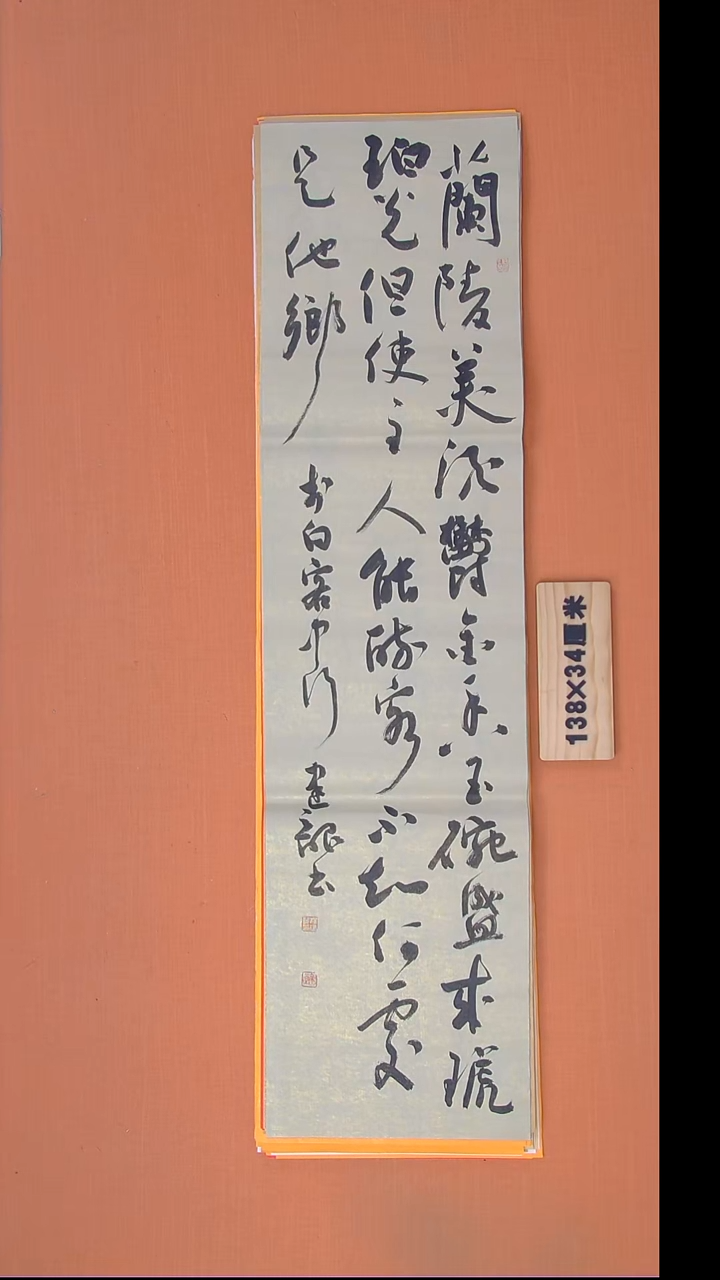 蘭陵美酒鬱金香玉碗盛來琥
珀光但使主人能醉客不知何處
是他鄉 李白客中行 建書
138×34厘米